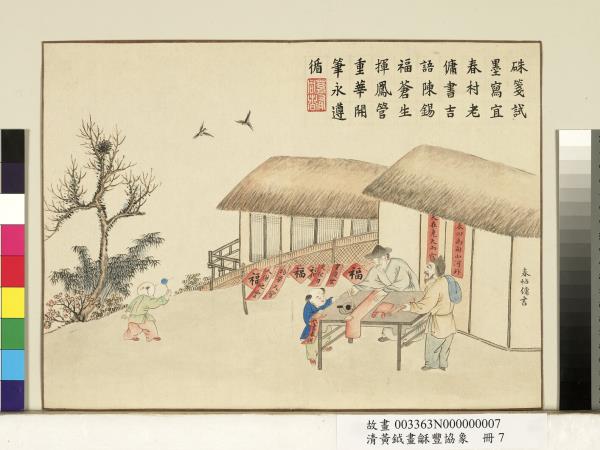 硃箋試
墨寫宜
春村老
傭書吉
語陳錫
福蒼生
揮鳳管
重華開
筆永遵
循
春帖傭書
福
福
故畫 003363N000000007
清黃鉞畫龢豐協象 冊 7